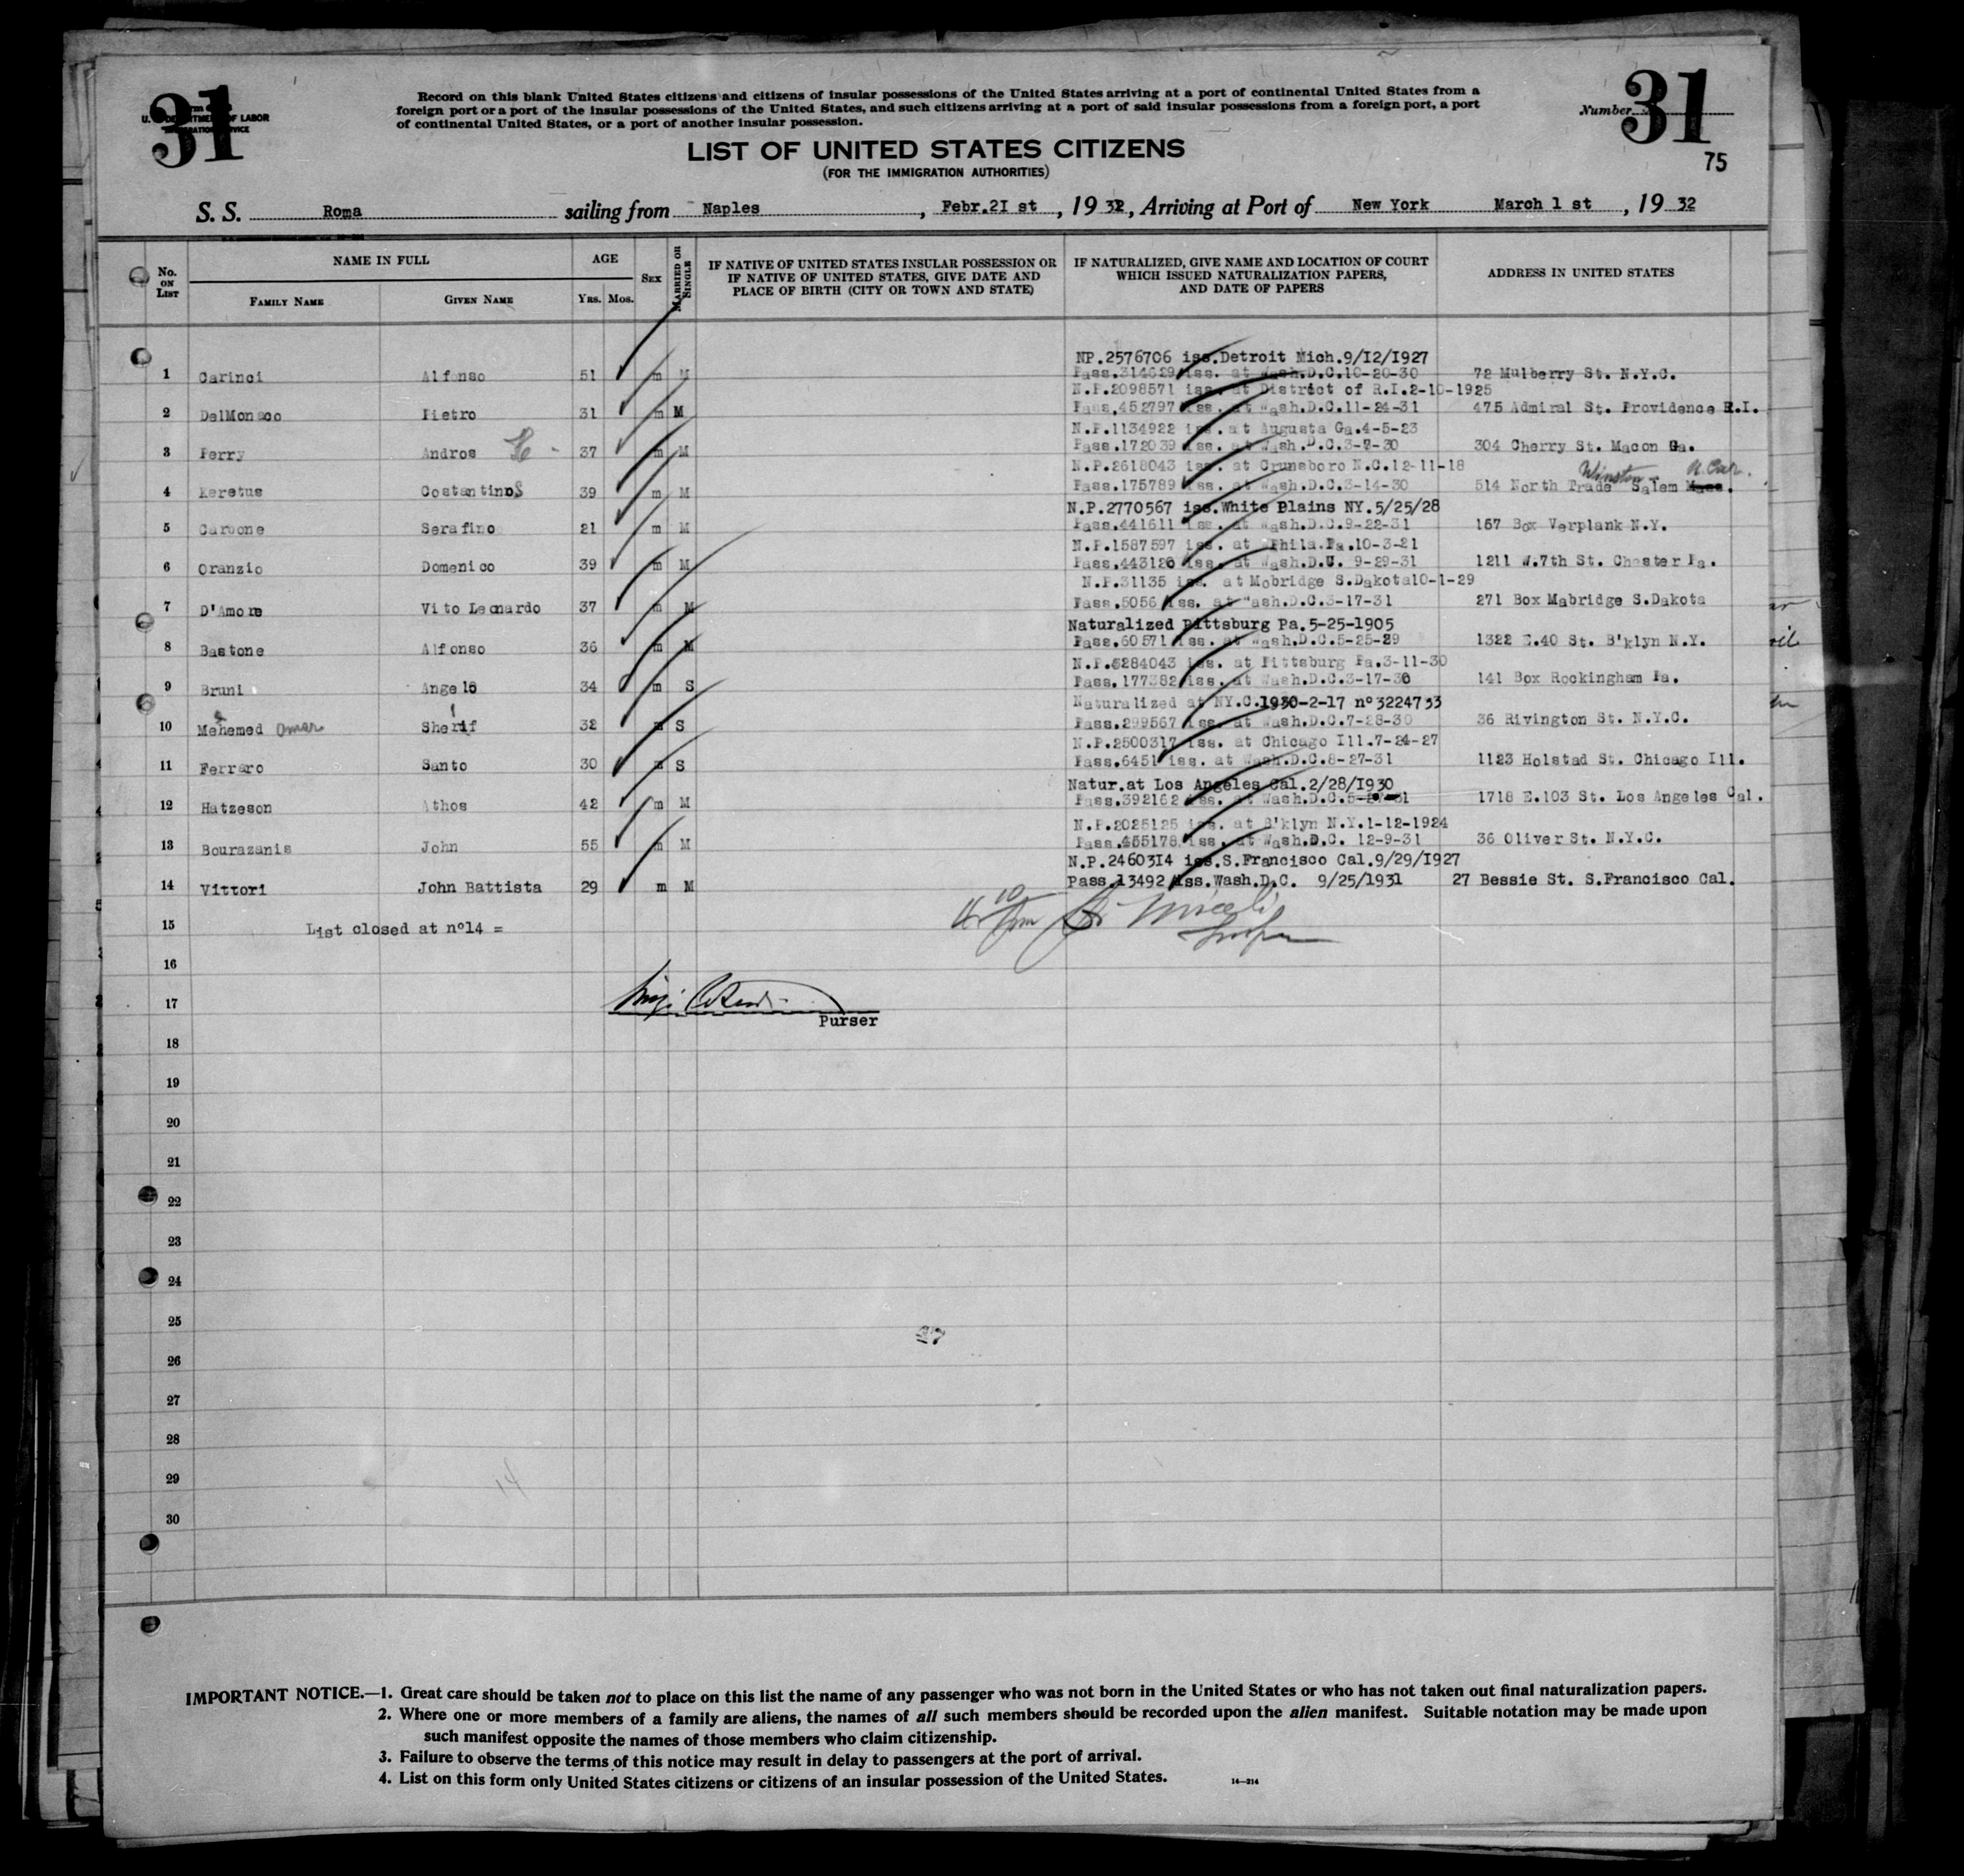 31
U. S. DEPARTMENT OF LABOR
Record on this blank United States citizens and citizens of insular possessions of the United States arriving at a port of continental United States from a
foreign port or a port of the insular possessions of the United States, and such citizens arriving at a port of said insular possessions from a foreign port, a port
of continental United States, or a port of another insular possession.
Number 31
75
LIST OF UNITED STATES CITIZENS
(FOR THE IMMIGRATION AUTHORITIES)
S. S. Roma sailing from Naples, Febr.2I st, 19 32, Arriving at Port of New York March 1 st, 19 32
No. ON LIST
NAME IN FULL
FAMILY NAME GIVEN NAME
AGE
YRS. MOS.
SEX
MARRIED OR SINGLE
IF NATIVE OF UNITED STATES INSULAR POSSESSION OR
IF NATIVE OF UNITED STATES, GIVE DATE AND
PLACE OF BIRTH (CITY OR TOWN AND STATE)
IF NATURALIZED, GIVE NAME AND LOCATION OF COURT
WHICH ISSUED NATURALIZATION PAPERS,
AND DATE OF PAPERS
ADDRESS IN UNITED STATES
NP.2576706 iss.Detroit Mich.9/I2/I927
1 Carinci Alfonso 51 m M Pass.314629 iss. at Wash.D.C.10-20-30 72 Mulberry St. N.Y.C.
N.P.2098571 iss. at District of R.I.2-10-1925
2 DelMonaco Pietro 31 m M Pass.452797 iss. at Wash.D.C.11-24-31 475 Admiral St. Providence R.I.
N.P.1134922 iss. at Augusta Ga.4-5-23
3 Perry Andros 37 m M Pass.172039 iss. at Wash.D.C.3-7-30 304 Cherry St. Macon Ga.
N.P.2618043 iss. at Grunsboro N.C.12-11-18
Winston N. Car.
4 Keretus CostantinoS 39 m M Pass.175789 iss. at Wash.D.C.3-14-30 514 North Trade Salem Mass.
N.P.2770567 iss.White Plains NY.5/25/28
5 Carbone Serafino 21 m M Pass.441611 iss. at Wash.D.C.9-22-31 157 Box Verplank N.Y.
N.P.1587597 iss. at Phila.Pa.10-3-21
6 Oranzio Domenico 39 m M Pass.443126 iss. at Wash.D.C. 9-29-31 1211 W.7th St. Chester Pa.
N.P.31135 iss. at Mobridge S.Dakota10-1-29
7 D'Amore Vito Leonardo 37 m M Pass.5056 iss. at Wash.D.C.3-17-31 271 Box Mabridge S.Dakota
Naturalized Pittsburg Pa.5-25-1905
8 Bastone Alfonso 36 m M Pass.60571 iss. at Wash.D.C.5-25-29 1322 E.40 St. B'klyn N.Y.
N.P.5284043 iss. at Pittsburg Pa.3-11-30
9 Bruni Angelo 34 m S Pass.177382 iss. at Wash.D.C.3-17-30 141 Box Rockingham Pa.
Naturalized at NY.C.1930-2-17 nº3224733
10 Mehemed Omar Sherif 32 m S Pass.299567 iss. at Wash.D.C.7-28-30 36 Rivington St. N.Y.C.
N.P.2500317 iss. at Chicago Ill.7-24-27
11 Ferraro Santo 30 m S Pass.6451 iss. at Wash.D.C.8-27-31 1123 Holstad St. Chicago Ill.
Natur.at Los Angeles Cal.2/28/I930
12 Hatzeson Athos 42 m M Pass.392162 iss. at Wash.D.C.5-27-31 1718 E.103 St. Los Angeles Cal.
N.P.2025125 iss. at B'klyn N.Y.1-12-1924
13 Bourazanis John 55 m M Pass.455178 iss. at Wash.D.C. 12-9-31 36 Oliver St. N.Y.C.
N.P.2460314 iss.S.Francisco Cal.9/29/I927
14 Vittori John Battista 29 m M Pass.13492 iss.Wash.D.C. 9/25/1931 27 Bessie St. S.Francisco Cal.
15 List closed at nº14 =
16
17
Purser
18
19
20
21
22
23
24
25
26
27
28
29
14
30
IMPORTANT NOTICE.—1. Great care should be taken not to place on this list the name of any passenger who was not born in the United States or who has not taken out final naturalization papers.
2. Where one or more members of a family are aliens, the names of all such members should be recorded upon the alien manifest. Suitable notation may be made upon
such manifest opposite the names of those members who claim citizenship.
3. Failure to observe the terms of this notice may result in delay to passengers at the port of arrival.
4. List on this form only United States citizens or citizens of an insular possession of the United States.
14—214